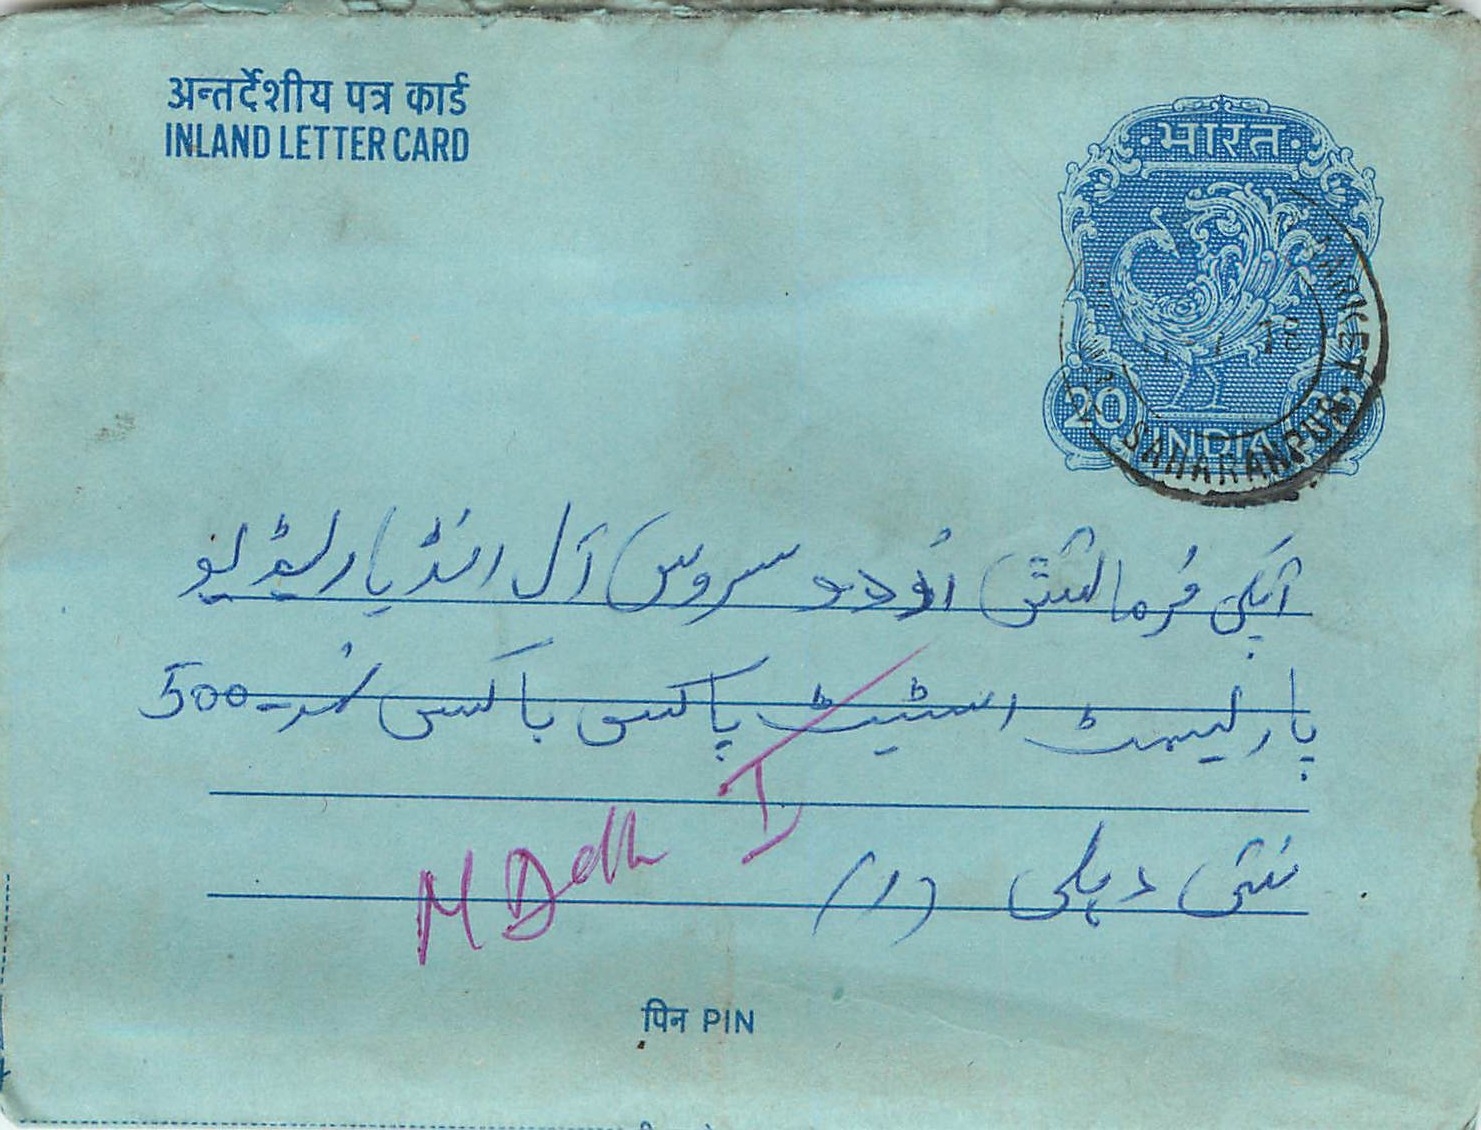 अन्तर्देशीय पत्र कार्ड
INLAND LETTER CARD
भारत
20 INDIA
MARKET. SAHARANPUR
آپکی فرمائش اُردو سروس آل انڈیا ریڈیو
پارلیمنٹ اسٹیٹ پاکسی باکسی نمبر 500
نئی دہلی (۱)
N Delh I
पिन PIN